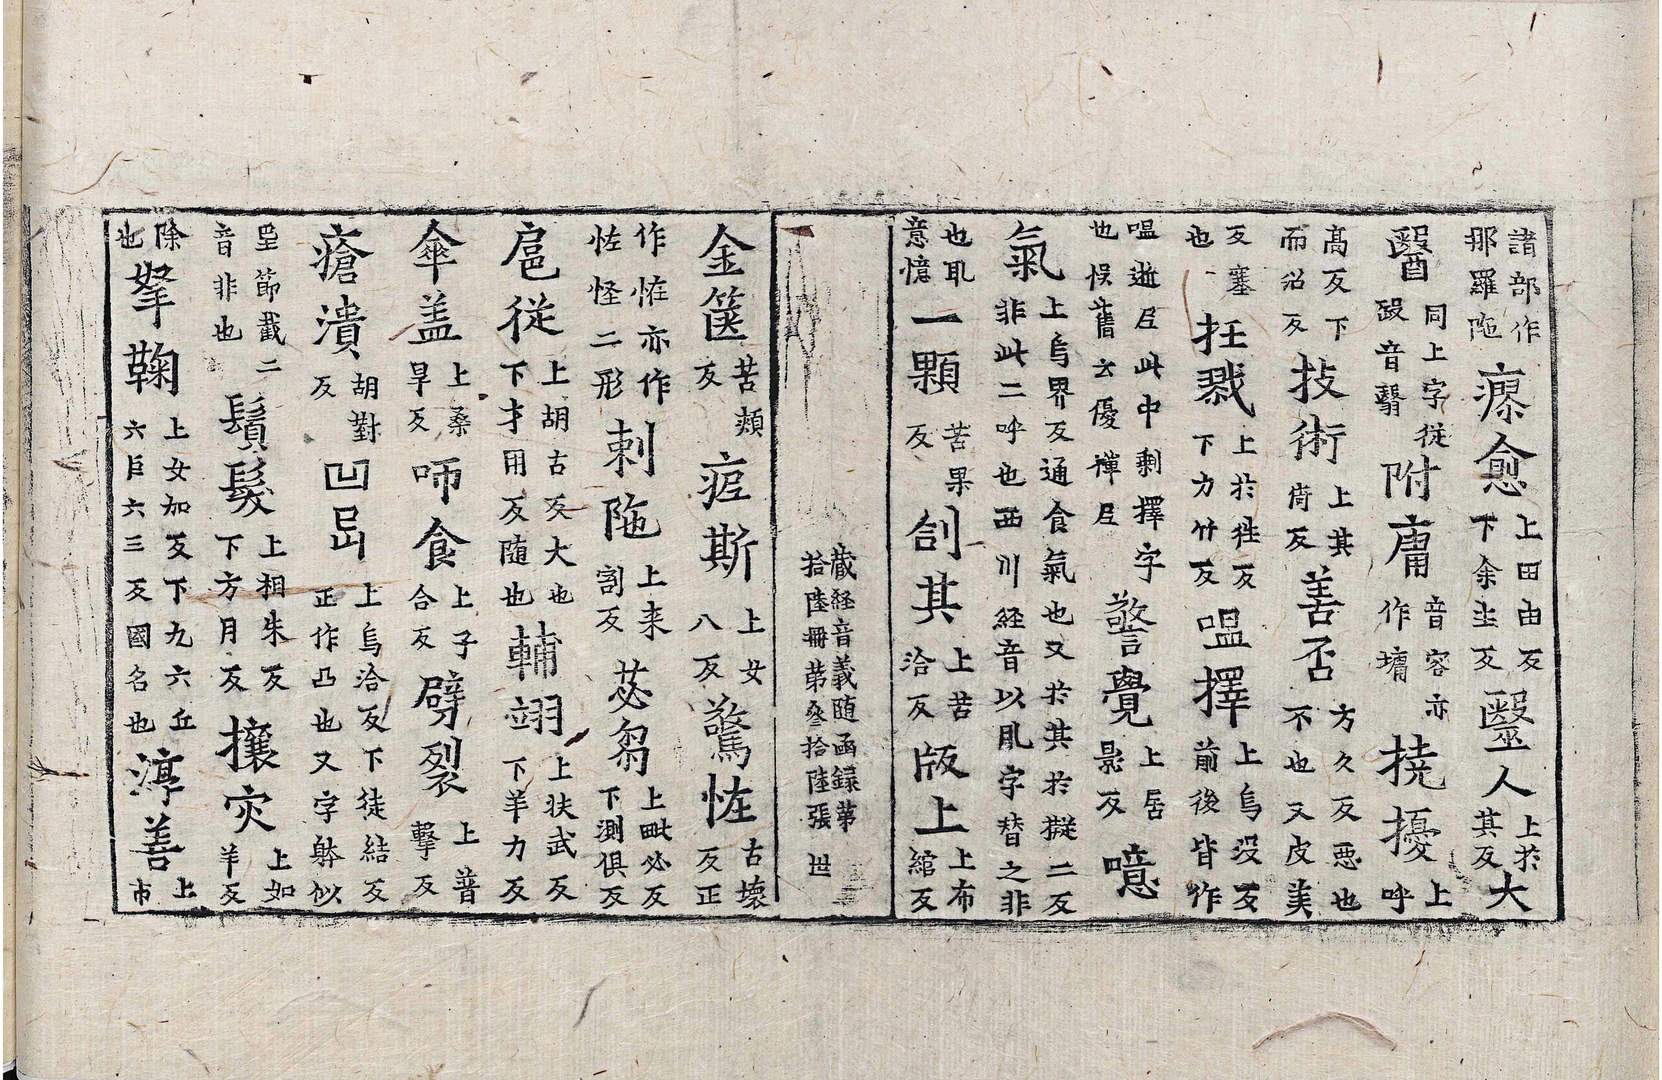 諸部作那羅陁療愈上田由反下余主反毉人上於其反大
醫同上字從殹音翳附庸音容亦作墉撓擾上呼
髙反下而沼反技術上其倚反善否方久反悪也不也又皮美
反塞也抂戮上於牲反下力竹反嗢擇上烏沒反前後皆作
嗢逝𡰱此中剩擇字也悮舊云優禪𡰱警覺上居影反噫
氣上烏界反通食氣也又於其於擬二反非此二呼也西川経音以凬字替之非
也意憶一顆苦果反其上苦洽反版上上布綰反
藏経音義随函録第
拾陸冊第叄拾陸張 世
金篋苦頰反疟斯上女八反驚恠古壊反正
作恠亦作恠怪二形剌陁上来割反苾蒭上毗必反下測俱反
扈従上胡古反大也下才用反随也輔翊上扶武反下羊力反
傘盖上桑旱反咂食上子合反劈裂上普擊反
瘡潰胡對反凹上烏洽反下徒結反正作凸也又字躰似
節截二音非也鬚髮上相朱反下方月反攘灾上如羊反
除也拏鞠上女加反下九六丘六巨六三反國名也淳善上市